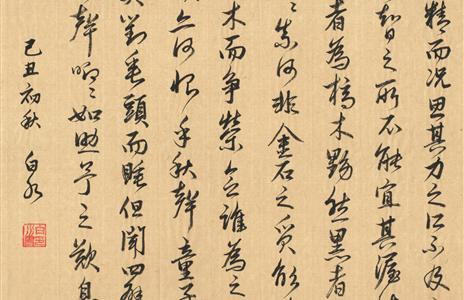 精而况思其力之所不及
智之所不能宜其渥
者為槁木黟然黑者
〻奈何非金石之質欲
木而爭榮念誰為之
亦何恨乎秋聲童子
莫對垂頭而睡但聞四壁
聲唧〻如助予之歎息
己丑初秋